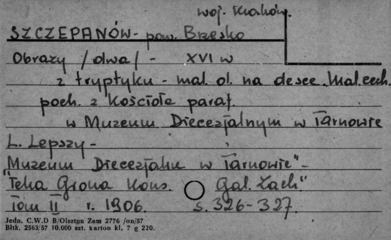 woj. Kraków.
SZCZEPANÓW - pow. Brzesko
Obrazy /dwa/ - XVI w
z tryptyku - mal. ol. na desce „Mal. cech.
poch. z Kościoła paraf.
w Muzeum Diecezjalnym w Tarnowie
L. Lepszy -
"Muzeum Diecezjalne w Tarnowie" -
"Teka Grona Kons. Gal. Zach"
Tom II r. 1906. s. 326-327.
Jedn. C.W.D B/Olsztyn Zam 2776 /on/57
Błtk. 2563/57 10.000 szt. karton kl. 7 g 210.